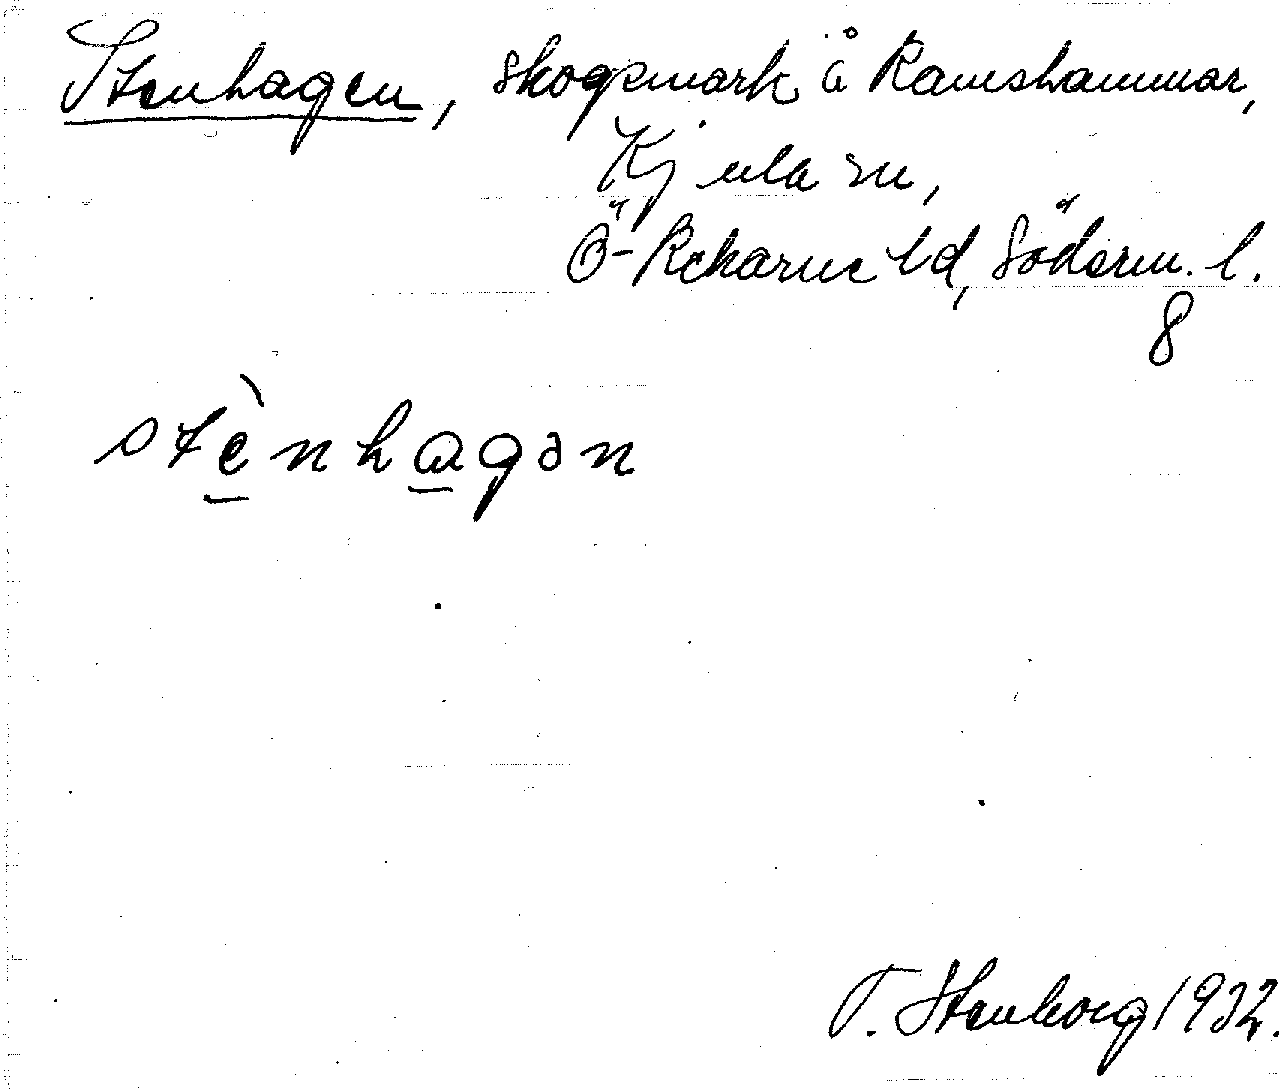 Stenhagen, skogsmark å Ramshammar,
Kjula sn,
Ö-Rekarne hd, Söderm. l.
8
stè̱nha̱gən
T. Stenborg 1932.